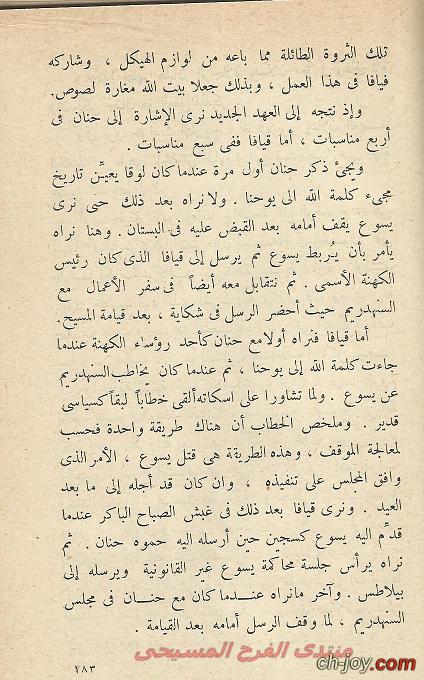 تلك الثروة الطائلة مما باعه من لوازم الهيكل ، وشاركه
فيافا فى هذا العمل ، وبذلك جعلا بيت الله مغارة لصوص.
وإذ نتجه إلى العهد الجديد نرى الإشارة إلى حنان فى
أربع مناسبات ، أما قيافا ففى سبع مناسبات .
ويجئ ذكر حنان أول مرة عندما كان لوقا يعيّن تاريخ
مجىء كلمة الله الى يوحنا . ولا نراه بعد ذلك حتى نرى
يسوع يقف أمامه بعد القبض عليه فى البستان . وهنا نراه
يأمر بأن يُربط يسوع ثم يرسل إلى قيافا الذى كان رئيس
الكهنة الأسمى . ثم نتقابل معه أيضاً فى سفر الأعمال مع
السنهدريم حيث أحضر الرسل فى شكاية ، بعد قيامة المسيح.
أما قيافا فنراه أولا مع حنان كأحد رؤساء الكهنة عندما
جاءت كلمة الله إلى يوحنا ، ثم عندما كان يخاطب السنهدريم
عن يسوع . ولما تشاورا على اسكاته ألقى خطاباً لبقاً كسياسى
قدير . وملخص الخطاب أن هناك طريقة واحدة فحسب
لمعالجة الموقف ، وهذه الطريقة هى قتل يسوع ، الأمر الذى
وافق المجلس على تنفيذه ، وان كان قد أجله إلى ما بعد
العيد . ونرى قيافا بعد ذلك فى غبش الصباح الباكر عندما
قدِّم اليه يسوع كسجين حين أرسله اليه حموه حنان . ثم
نراه يرأس جلسة محاكمة يسوع غير القانونية ويرسله إلى
بيلاطس . وآخر ما نراه عندما كان مع حنان فى مجلس
السنهدريم ، لما وقف الرسل أمامه بعد القيامة .
منتدى الفرح المسيحى
ch-joy.com
١٨٣